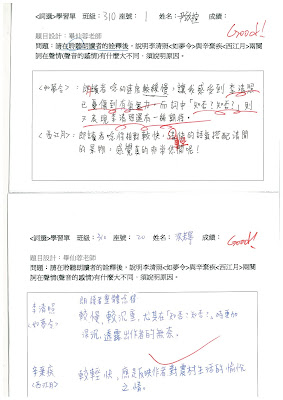 <詞選>學習單 班級：310 座號： 1 姓名： 成績： Good!
題目設計：畢仙蓉老師
問題：請在聆聽朗讀者的詮釋後，說明李清照<如夢令>與辛棄疾<西江月>兩闋
詞在聲情(聲音的感情)有什麼大不同，須說明原因。
<如夢令>：朗讀者唸的速度較緩慢，讓我感受到李清照
已憂傷到有氣無力，而詞中「知否？知否？」則
李清照還有一絲期待。
<西江月>：朗讀者唸得相對較快，的語氣搭配清閒
的景物，感覺真的非常休閒呢！
<詞選>學習單 班級：310 座號： 20 姓名： 成績： Good!
題目設計：畢仙蓉老師
問題：請在聆聽朗讀者的詮釋後，說明李清照<如夢令>與辛棄疾<西江月>兩闋
詞在聲情(聲音的感情)有什麼大不同，須說明原因。
李清照
<如夢令>
朗讀者整體唸得
較慢，較沉重，尤其在「知否？知否？」時更加
深沉，透露出作者的無奈。
辛棄疾
<西江月>
較輕快，應是反映作者對農村生活的愉悅
之情。